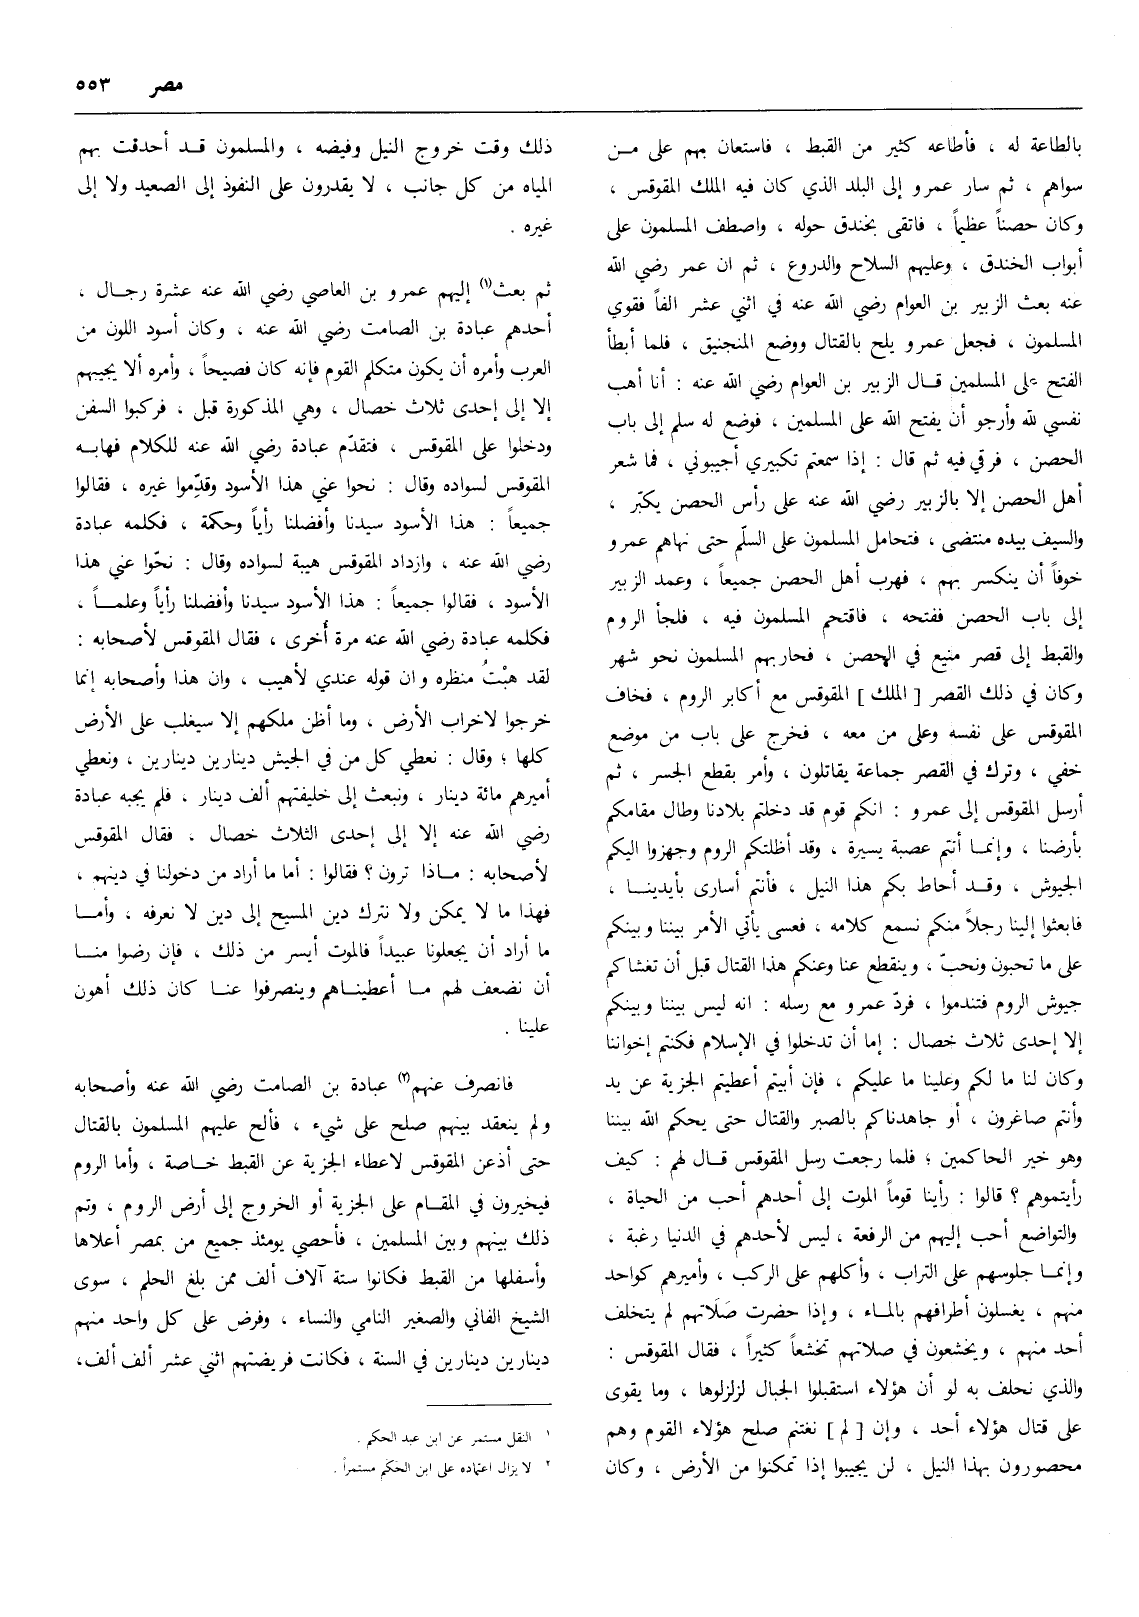 مصر ٥٥٣
بالطاعة له ، فأطاعه كثير من القبط ، فاستعان بهم على من
سواهم ، ثم سار عمرو إلى البلد الذي كان فيه الملك المقوقس ،
وكان حصناً عظيماً ، فاتقى بخندق حوله ، واصطف المسلمون على
أبواب الخندق ، وعليهم السلاح والدروع ، ثم ان عمر رضي الله
عنه بعث الزبير بن العوام رضي الله عنه في اثني عشر الفاً فقوي
المسلمون ، فجعل عمرو يلح بالقتال ووضع المنجنيق ، فلما أبطأ
الفتح على المسلمين قال الزبير بن العوام رضي الله عنه : أنا أهب
نفسي لله وأرجو أن يفتح الله على المسلمين ، فوضع له سلم إلى باب
الحصن ، فرقي فيه ثم قال : إذا سمعتم تكبيري أجيبوني ، فما شعر
أهل الحصن إلا بالزبير رضي الله عنه على رأس الحصن يكبّر ،
والسيف بيده منتضى ، فتحامل المسلمون على السلّم حتى نهاهم عمرو
خوفاً أن ينكسر بهم ، فهرب أهل الحصن جميعاً ، وعمد الزبير
إلى باب الحصن ففتحه ، فاقتحم المسلمون فيه ، فلجأ الروم
والقبط إلى قصر منيع في الحصن ، فحاربهم المسلمون نحو شهر
وكان في ذلك القصر [ الملك ] المقوقس مع أكابر الروم ، فخاف
المقوقس على نفسه وعلى من معه ، فخرج على باب من موضع
خفي ، وترك في القصر جماعة يقاتلون ، وأمر بقطع الجسر ، ثم
أرسل المقوقس إلى عمرو : انكم قوم قد دخلتم بلادنا وطال مقامكم
بأرضنا ، وإنما أنتم عصبة يسيرة ، وقد أظلتكم الروم وجهزوا اليكم
الجيوش ، وقد أحاط بكم هذا النيل ، فأنتم أسارى بأيدينا ،
فابعثوا إلينا رجلاً منكم نسمع كلامه ، فعسى يأتي الأمر بيننا وبينكم
على ما تحبون ونحبّ ، وينقطع عنا وعنكم هذا القتال قبل أن تغشاكم
جيوش الروم فتندموا ، فردّ عمرو مع رسله : انه ليس بيننا وبينكم
إلا إحدى ثلاث خصال : إما أن تدخلوا في الإسلام فكنتم إخواننا
وكان لنا ما لكم وعلينا ما عليكم ، فإن أبيتم أعطيتم الجزية عن يد
وأنتم صاغرون ، أو جاهدناكم بالصبر والقتال حتى يحكم الله بيننا
وهو خير الحاكمين ؛ فلما رجعت رسل المقوقس قال لهم : كيف
رأيتموهم ؟ قالوا : رأينا قوماً الموت إلى أحدهم أحب من الحياة ،
والتواضع أحب إليهم من الرفعة ، ليس لأحدهم في الدنيا رغبة ،
وإنما جلوسهم على التراب ، وأكلهم على الركب ، وأميرهم كواحد
منهم ، يغسلون أطرافهم بالماء ، وإذا حضرت صَلَاتهم لم يتخلف
أحد منهم ، ويخشعون في صلاتهم تخشعاً كثيراً ، فقال المقوقس :
والذي نحلف به لو أن هؤلاء استقبلوا الجبال لزلزلوها ، وما يقوى
على قتال هؤلاء أحد ، وإن [ لم ] نغتنم صلح هؤلاء القوم وهم
محصورون بهذا النيل ، لن يجيبوا إذا تمكنوا من الأرض ، وكان
ذلك وقت خروج النيل وفيضه ، والمسلمون قد أحدقت بهم
المياه من كل جانب ، لا يقدرون على النفوذ إلى الصعيد ولا إلى
غيره .
ثم بعث(١) إليهم عمرو بن العاصي رضي الله عنه عشرة رجال ،
أحدهم عبادة بن الصامت رضي الله عنه ، وكان أسود اللون من
العرب وأمره أن يكون متكلم القوم فإنه كان فصيحاً ، وأمره ألا يجيبهم
إلا إلى إحدى ثلاث خصال ، وهي المذكورة قبل ، فركبوا السفن
ودخلوا على المقوقس ، فتقدّم عبادة رضي الله عنه للكلام فهابه
المقوقس لسواده وقال : نحوا عني هذا الأسود وقدّموا غيره ، فقالوا
جميعاً : هذا الأسود سيدنا وأفضلنا رأياً وحكمة ، فكلمه عبادة
رضي الله عنه ، وازداد المقوقس هيبة لسواده وقال : نحّوا عني هذا
الأسود ، فقالوا جميعاً : هذا الأسود سيدنا وأفضلنا رأياً وعلماً ،
فكلمه عبادة رضي الله عنه مرة أُخرى ، فقال المقوقس لأصحابه :
لقد هبْتُ منظره وان قوله عندي لأهيب ، وان هذا وأصحابه إنما
خرجوا لاخراب الأرض ، وما أظن ملكهم إلا سيغلب على الأرض
كلها ؛ وقال : نعطي كل من في الجيش دينارين دينارين ، ونعطي
أميرهم مائة دينار ، ونبعث إلى خليفتهم ألف دينار ، فلم يجبه عبادة
رضي الله عنه إلا إلى إحدى الثلاث خصال ، فقال المقوقس
لأصحابه : ماذا ترون ؟ فقالوا : أما ما أراد من دخولنا في دينهم ،
فهذا ما لا يمكن ولا نترك دين المسيح إلى دين لا نعرفه ، وأما
ما أراد أن يجعلونا عبيداً فالموت أيسر من ذلك ، فإن رضوا منا
أن نضعف لهم ما أعطيناهم وينصرفوا عنا كان ذلك أهون
علينا .
فانصرف عنهم(٢) عبادة بن الصامت رضي الله عنه وأصحابه
ولم ينعقد بينهم صلح على شيء ، فألح عليهم المسلمون بالقتال
حتى أذعن المقوقس لاعطاء الجزية عن القبط خاصة ، وأما الروم
فيخيرون في المقام على الجزية أو الخروج إلى أرض الروم ، وتم
ذلك بينهم وبين المسلمين ، فأحصي يومئذ جميع من بمصر أعلاها
وأسفلها من القبط فكانوا ستة آلاف ألف ممن بلغ الحلم ، سوى
الشيخ الفاني والصغير النامي والنساء ، وفرض على كل واحد منهم
دينارين دينارين في السنة ، فكانت فريضتهم اثني عشر ألف ألف،
١ النقل مستمر عن ابن عبد الحكم .
٢ لا يزال اعتماده على ابن الحكم مستمراً .